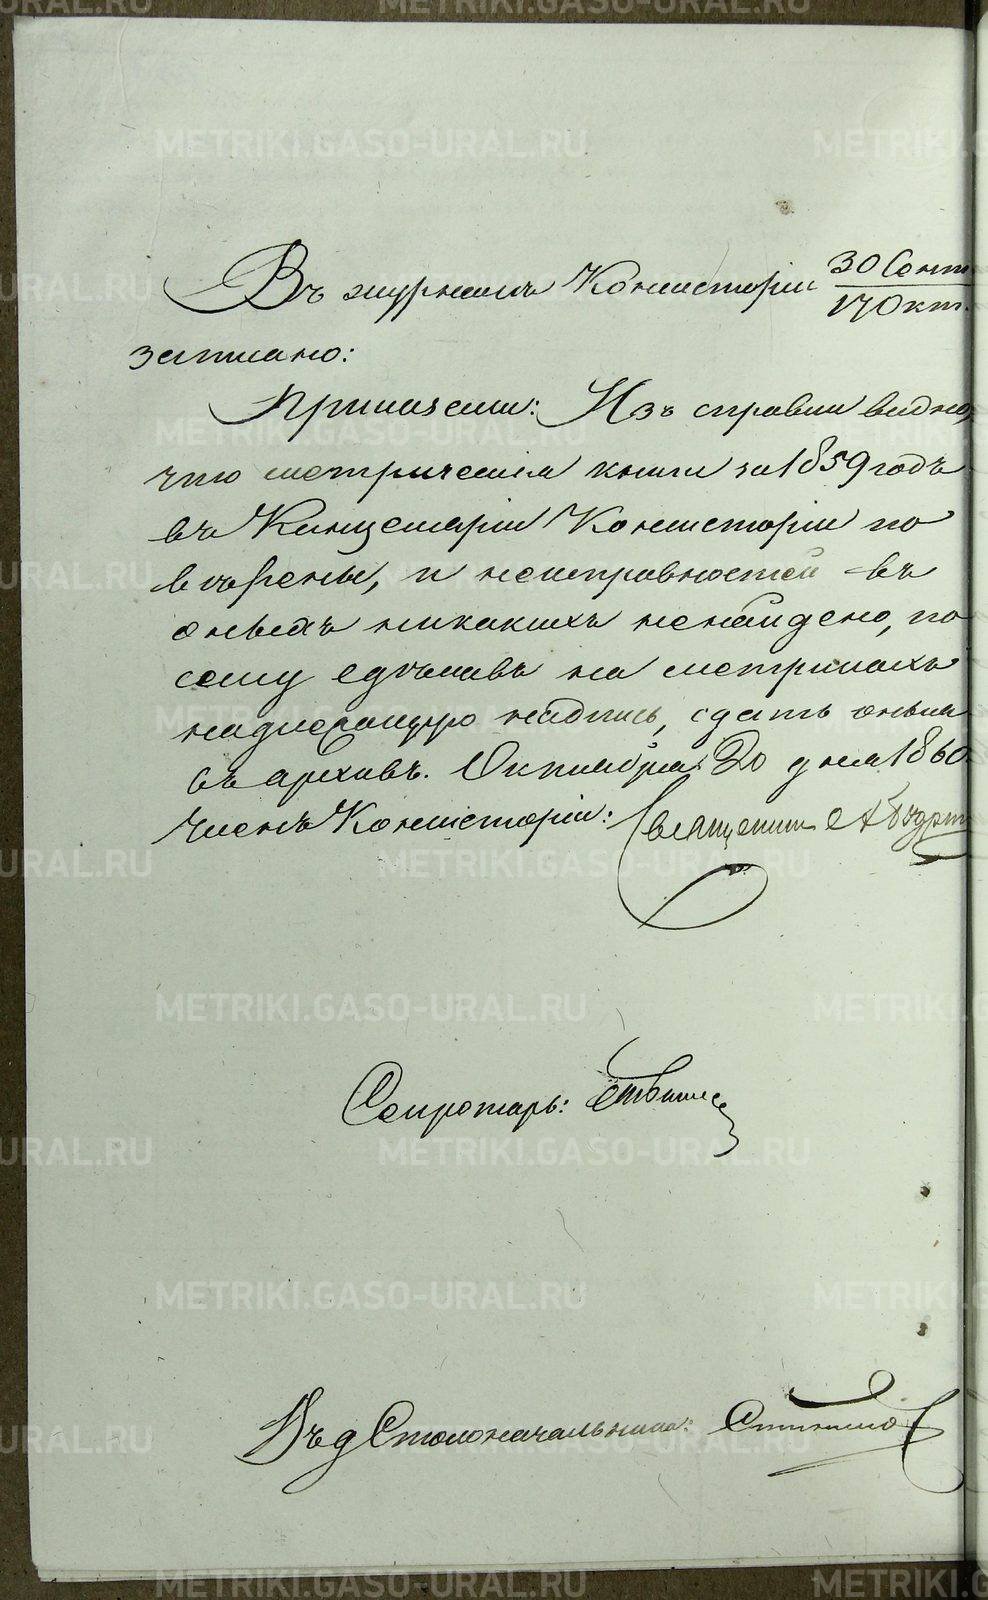 Въ журналѣ Консисторіи 30 Сент
17 Окт.
записано:
Приказали: Изъ справки видно,
что метрическія книги за 1859 годъ
въ Канцеляріи Консисторіи по
вѣрены, и неисправностей въ
оныхъ никакихъ ненайдено, по
сему сдѣлавъ на метрикахъ
надлежащую надпись, сдать оныя
въ архивъ. Октября 20 дня 1860
Членъ Консисторіи: Священник
Секретарь:
Въ д Столоначальника:
METRIKI.GASO-URAL.RU